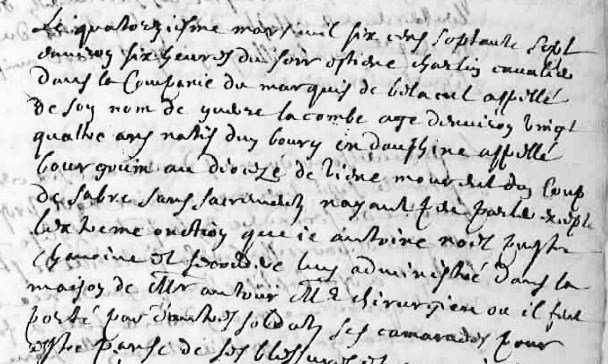 Le quatorziesme mars mil six cens septante sept
environ six heures du soir estiene charlin cavalier
dans la Compagnie du marquis de belacuil appellé
de son nom de guerre lacombe age denviron vingt
quatre ans natif dun bourg en dauphine appellé
bourguoin au diocese de viene mourut dun Coup
de sabre sans sacrements nayant parle excepte
lextreme onction que ie antoine noel prestre
Chanoine et secondaire luy administré dans la
maison de Mr antour Me chirurgien ou il fut
porté par dautres soldats ses camarades pour
estre pansé de ses blessures et